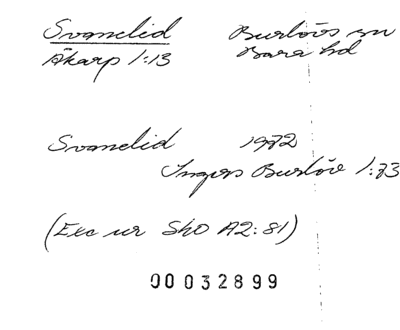 Svanelid Burlövs sn
Åkarp 1:13 Bara hd
Svanelid 1972
Ingers Burlöv 1:73
(Exc ur Sko A2:81)
00032899